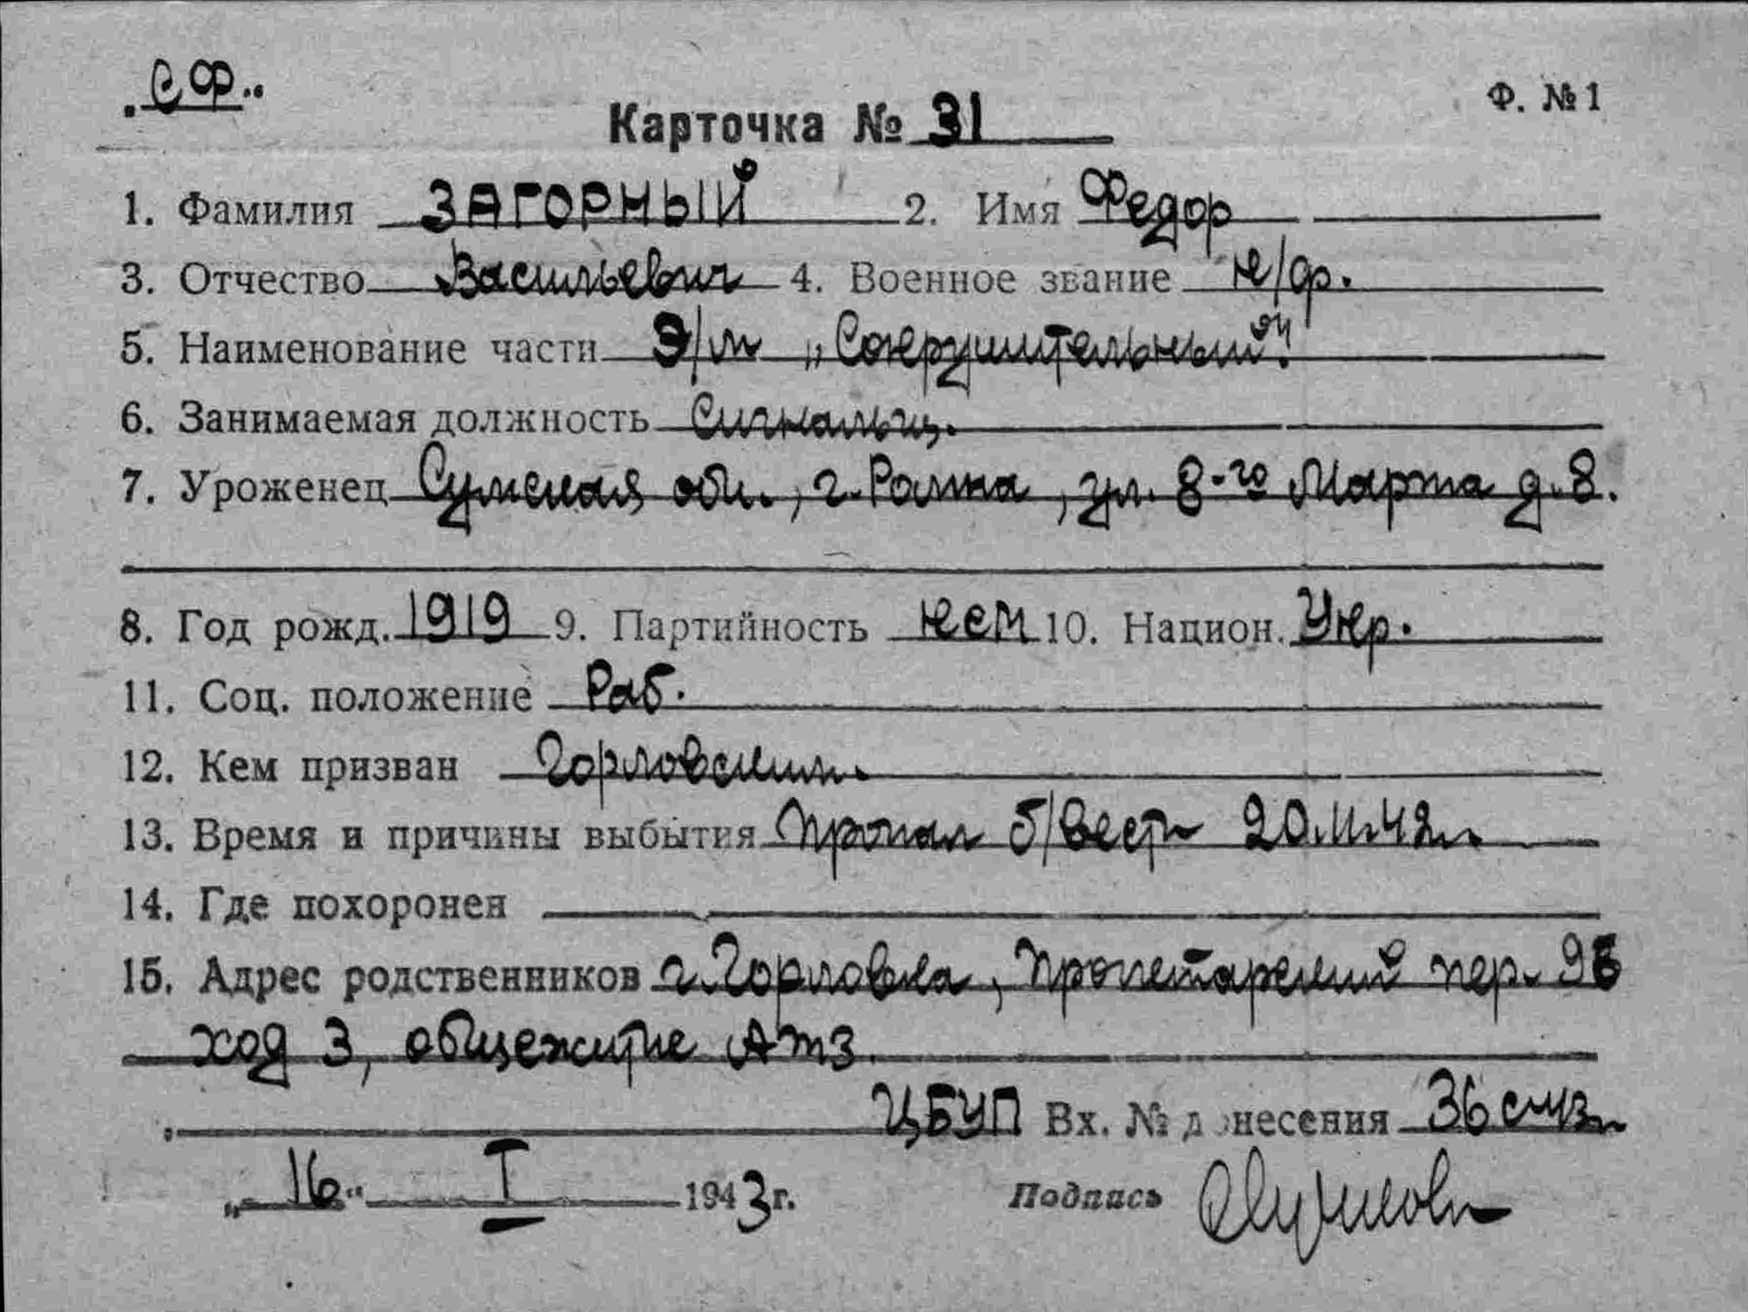 „СФ“
Ф. №1
Карточка № 31
1. Фамилия ЗАГОРНЫЙ 2. Имя Федор
3. Отчество Васильевич 4. Военное звание к/ф.
5. Наименование части Э/м „Сокрушительный“.
6. Занимаемая должность Сигнальщ.
7. Уроженец Сумская обл., г. Ромна, ул. 8-го Марта д. 8.
8. Год рожд. 1919 9. Партийность 10. Национ. Укр.
11. Соц. положение Раб.
12. Кем призван Горловским.
13. Время и причины выбытия Пропал б/вести 20.11.42г.
14. Где похоронен
15. Адрес родственников г. Горловка, Пролетарский пер.
ход 3, общежитие АТЗ.
ЦБУП Вх. № донесения 36
„16“ I 1943 г. Подпись